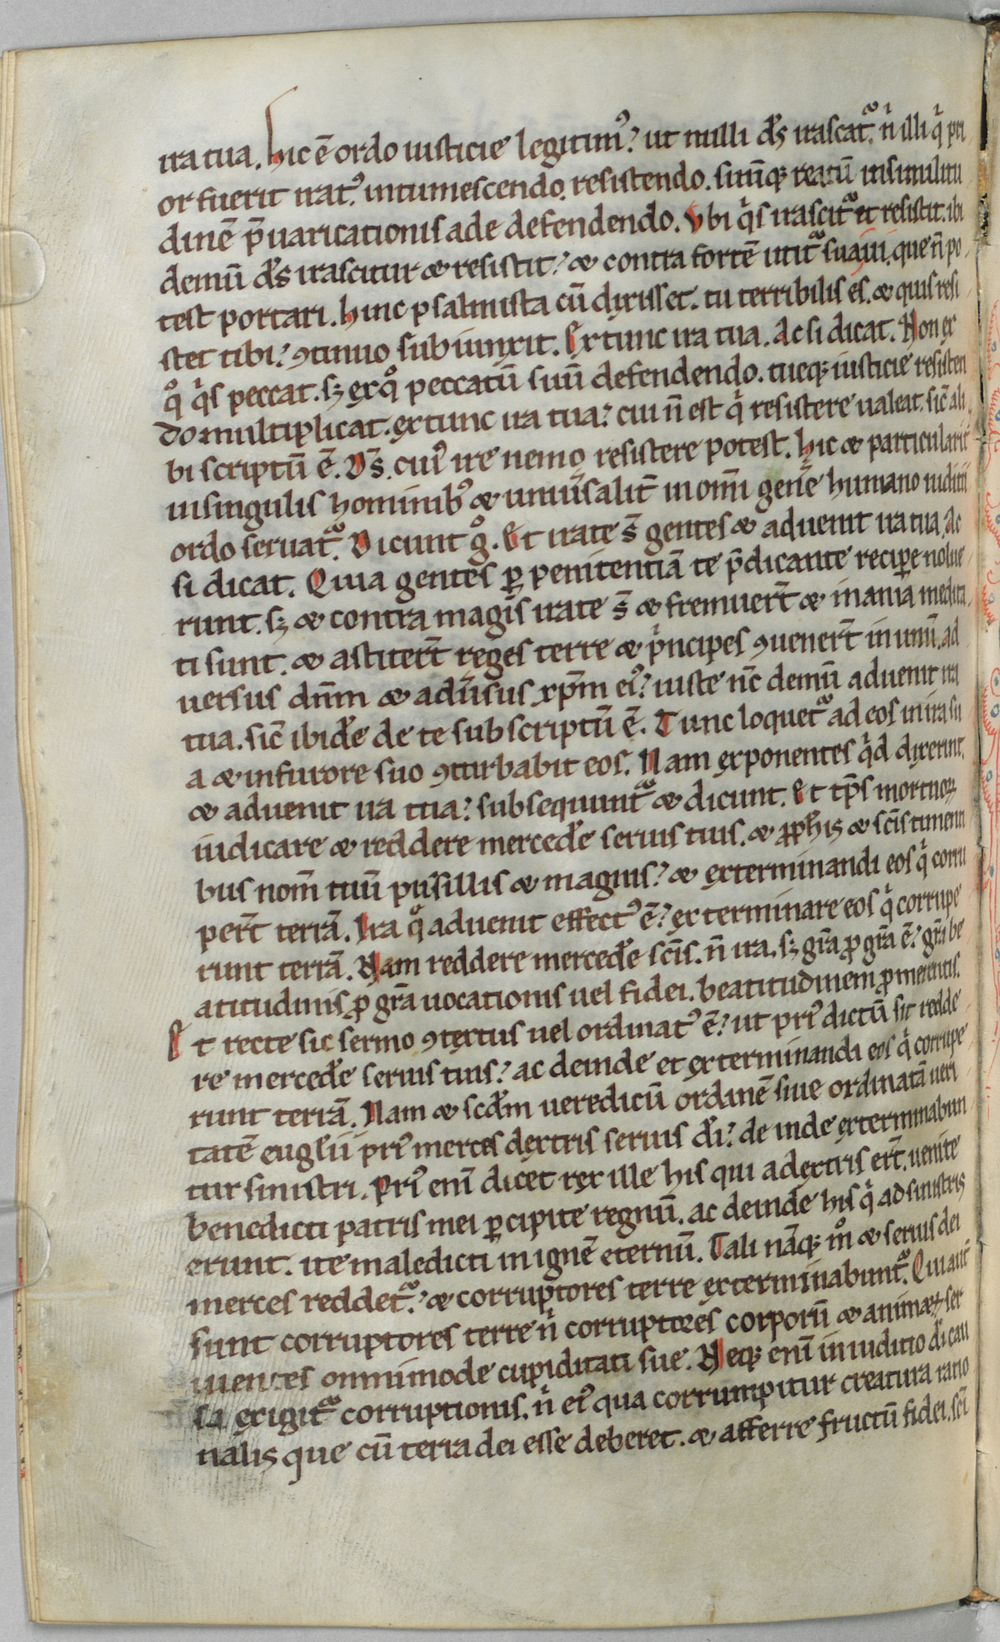 ira tua. Hic ē ordo iusticie legitim᷒? ut nulli d̄s irascat᷑. n̄ illi q̇ pri
or fuerit irat᷒. intumescendo. resistendo. suūq; reatū insimilitu
dinē p̄uaricationis ade defendendo. Ubi q̇s irascit᷑ et resistit. ibi
demū d̄s irascitur & resistit? & contra fortē utit᷑ sua ui. que n̄ po
test portari. Hinc psalmista cū dixisset. tu terribilis es. & quis resi
stet tibi? ꝯtinuo subiunxit. Ex tunc ira tua. Ac si dicat. Non ex
qͦ q̇s peccat. sꝫ ex qͦ peccatū suū defendendo. tueq; iusticie resisten
do multiplicat. ex tunc ira tua? cui n̄ est q̇ resistere ualeat. sic̄ ali
bi scriptū ē. D̄s. cui᷒ ire nemo resistere potest. Hic & particularit̄
in singulis hominib᷒ & uniu̾salit̄ in om̄i gen̾e humano iudicii
ordo seruat᷑. Dicunt gͦ. Et irate s̄ gentes & aduenit ira tua. Ac
si dicat. Quia gentes ꝑ penitentiā te p̄dicante recipe nolue
runt. sꝫ & contra magis irate s̄ & fremuert̄ & inania medita
ti sunt. & astitert̄ reges terre & ṗncipes ꝯuenert̄ in unū. ad
uersus dn̄m & adu̾sus xp̄m ei᷒? iuste nc̄ demū aduenit ira
tua. sic̄ ibidē de te subscriptū ē. Tunc loquet᷑ ad eos in ira su
a & in furore suo ꝯturbabit eos. Nam exponentes q̇d dixerint.
& aduenit ira tua? subsequunt᷑ & dicunt. Et tp̄s mortuoꝝ
iudicare & reddere mercedē seruis tuis. & ꝓph̄is & sc̄is timenti
bus nom̄ tuū pusillis & magnis? & exterminandi eos q̇ corru
pert̄ terrā. Ira qͦ aduenit effect᷒ ē? exterminare eos q̇ corrupe
runt terrā. Nam reddere mercedē sc̄is. n̄ ira. sꝫ gr̄a ꝓ gr̄a ē? gr̄a be
atitudinis ꝓ gr̄a uocationis uel fidei. beatitudinem ꝓmerentis.
Et recte sic sermo ꝯtextus uel ordinat᷒ ē? ut pri᷒ dictū sit redde
re mercedē seruis tuis? ac deinde et exterminandi eos q̇ corrupe
runt terrā. Nam & scd̄m ueredicū ordinē siue ordinatā ueri
tatē eugl̄ii pri᷒ merces dextris seruis dī? de inde exterminabun
tur sinistri. Pri᷒ eni̅ dicet rex ille his qui a dextris ert̄. uenite
benedicti patris mei ꝑcipite regnū. ac deinde his q̇ ad sinistris
erunt. ite maledicti in ignē eternū. Tali nāq; mͦ & seruis dei
merces reddet᷑? & corruptores terre exterminabunt᷑. Qui aut̄
sunt corruptores terre n̄ corruptores corporū & animaꝝ ser
uientes omnimode cupiditati sue. Neq; eni̅ in iuditio dī cau
sa exigit᷑ corruptionis. n̄ ei᷒ qua corrumpitur creatura ratio
nalis que cū terra dei esse deberet. & afferre fructū fidei. sc̄i